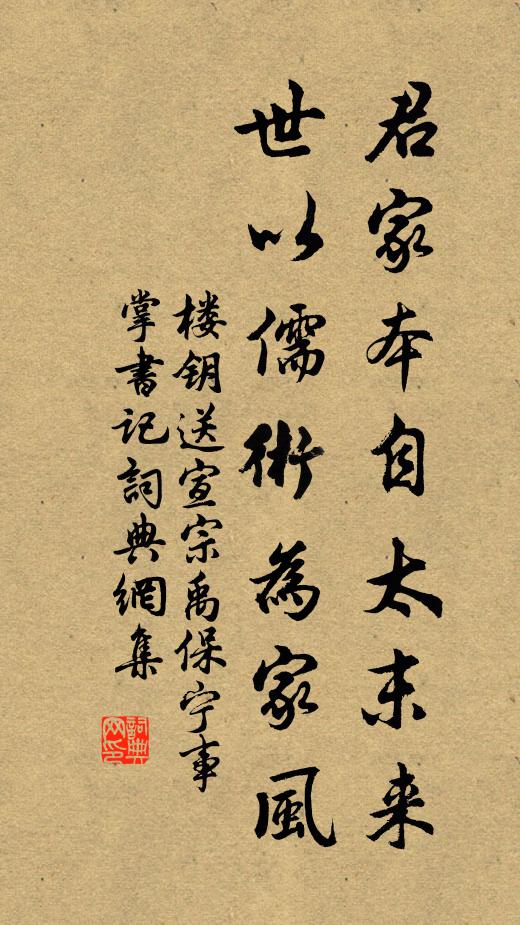 君家本自太末来
世以儒術為家風
楼钥送宣宗禹保宁事
掌書记詞典網集
詞典网印